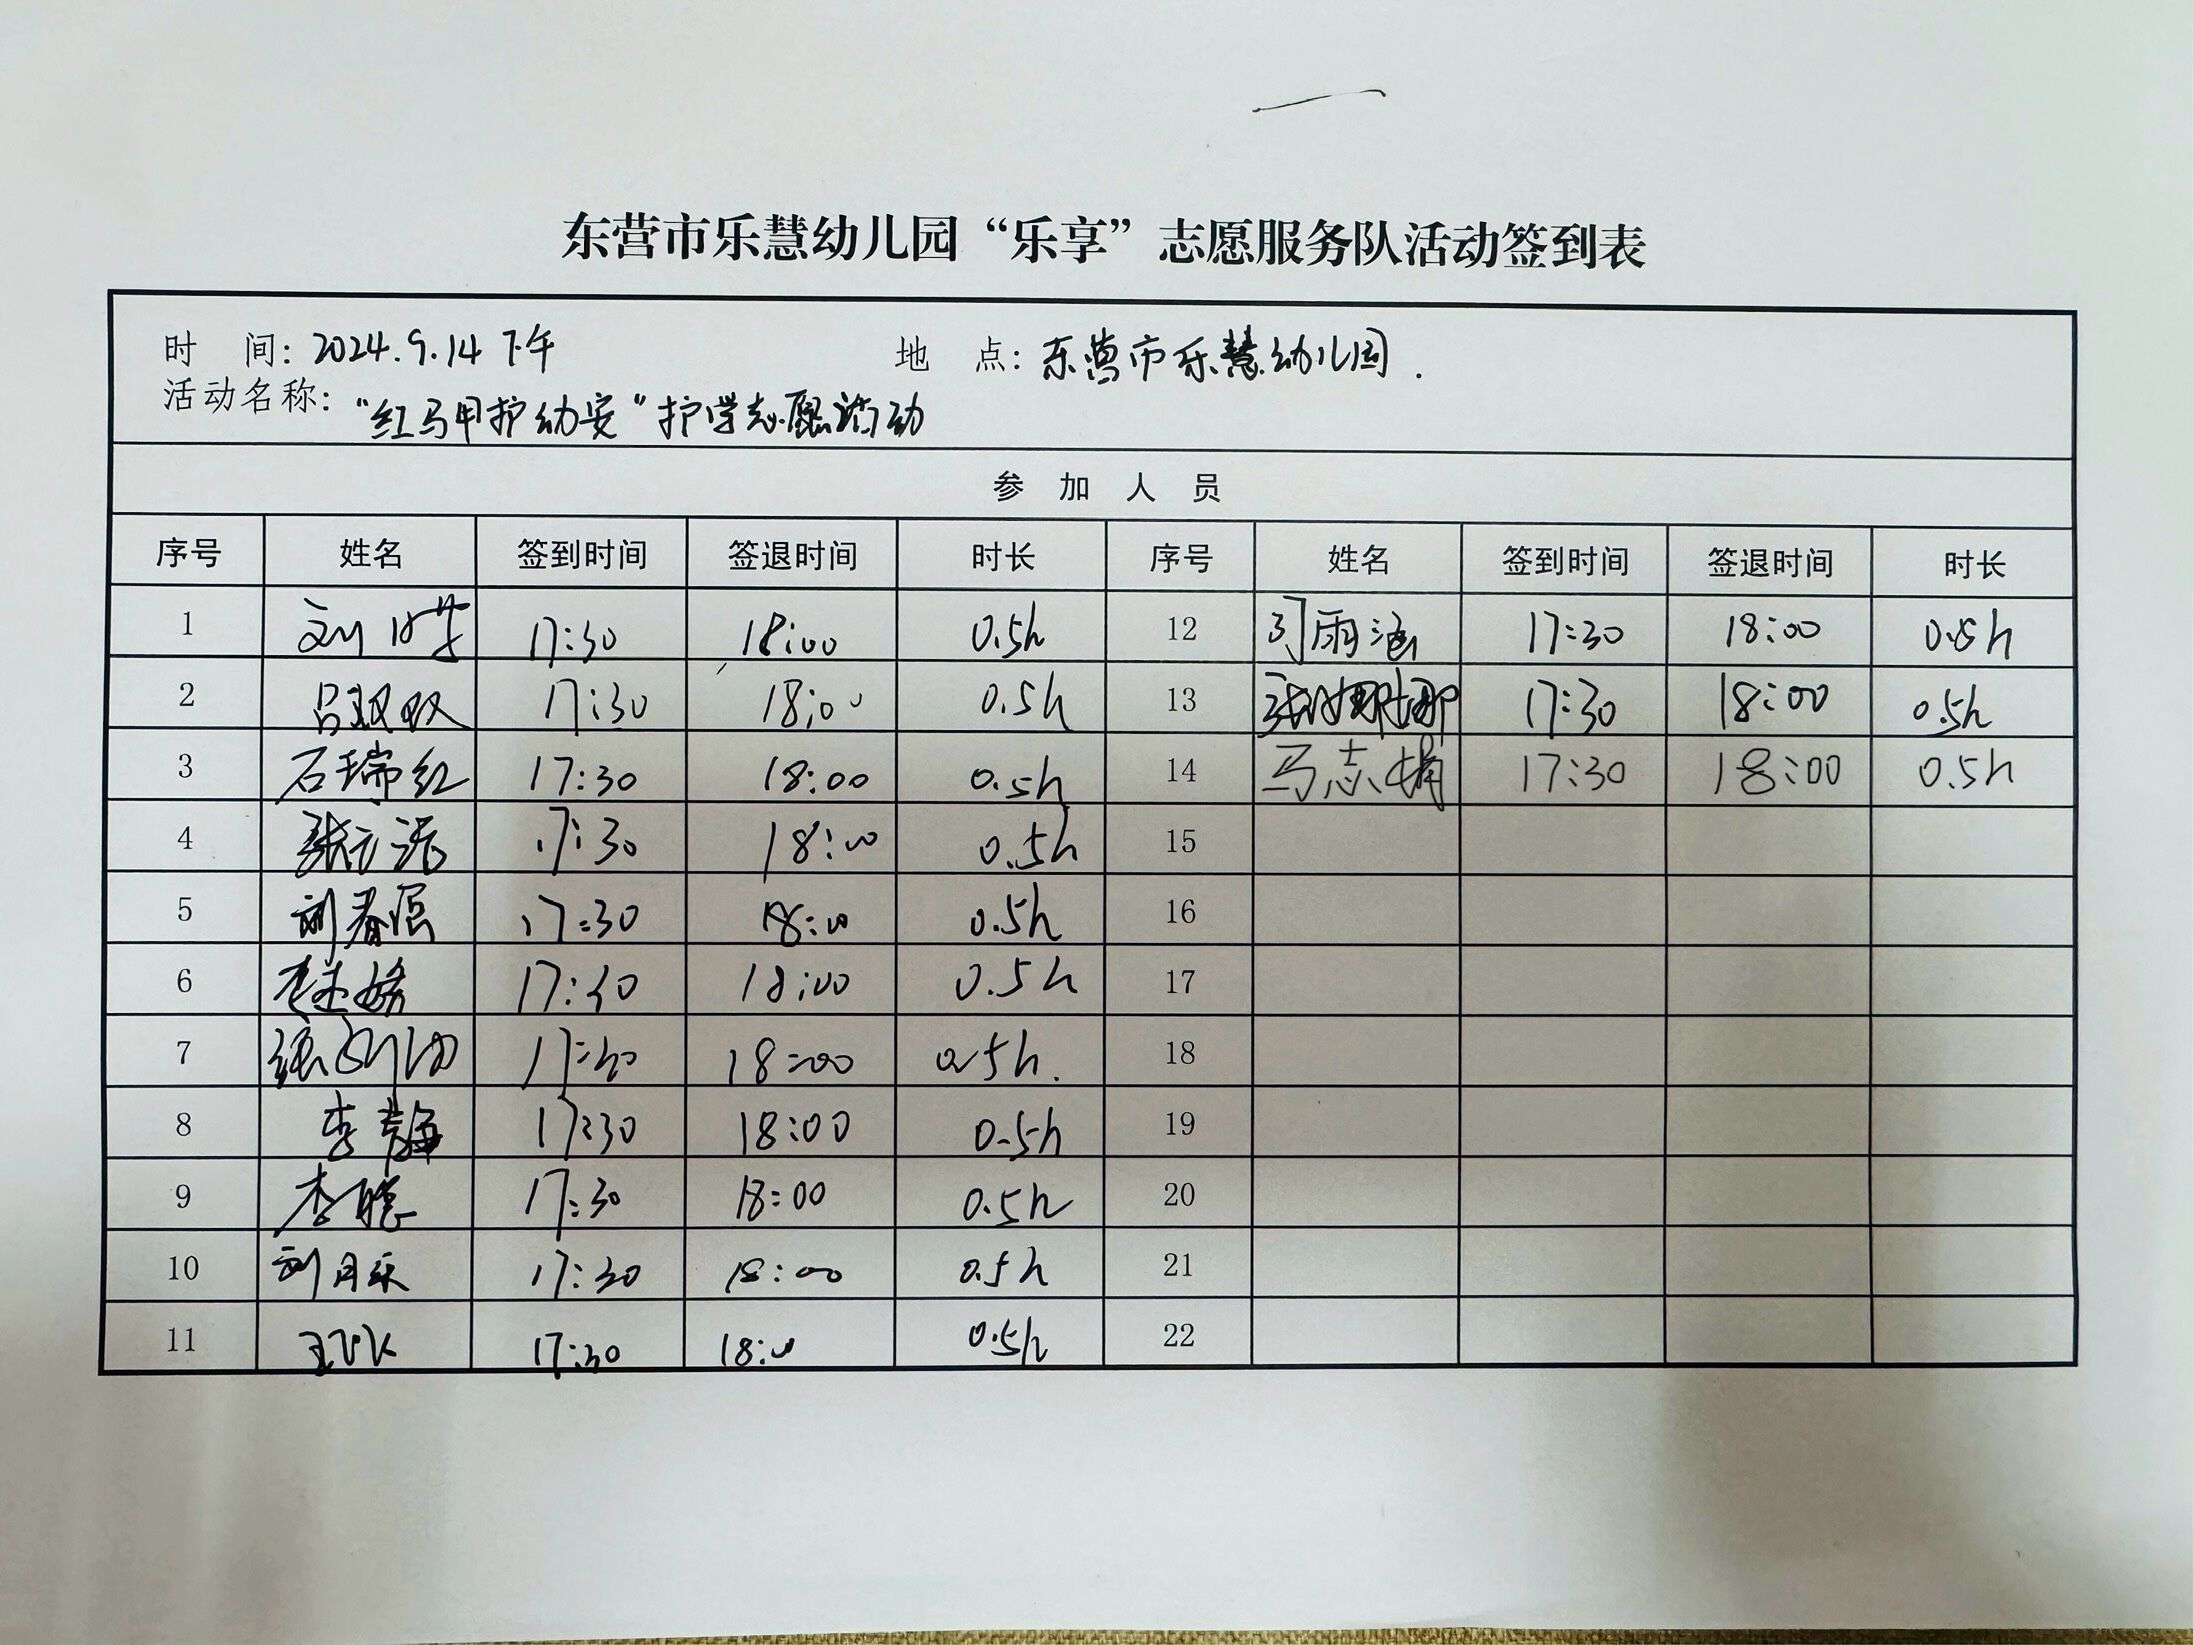 东营市乐慧幼儿园“乐享”志愿服务队活动签到表
时 间: 2024.9.14 下午 地 点: 东营市乐慧幼儿园.
活动名称: “红马甲护幼安”护学志愿活动
参 加 人 员
序号 姓名 签到时间 签退时间 时长 序号 姓名 签到时间 签退时间 时长
1 刘 17:30 18:00 0.5h 12 刁雨涵 17:30 18:00 0.5h
2 吕双双 17:30 18:00 0.5h 13 17:30 18:00 0.5h
3 石瑞红 17:30 18:00 0.5h 14 马志娟 17:30 18:00 0.5h
4 张 17:30 18:00 0.5h 15
5 刘春 17:30 18:00 0.5h 16
6 李 17:30 18:00 0.5h 17
7 张 17:30 18:00 0.5h. 18
8 李静 17:30 18:00 0.5h 19
9 李晓 17:30 18:00 0.5h 20
10 刘月乐 17:30 18:00 0.5h 21
11 王 17:30 18:00 0.5h 22